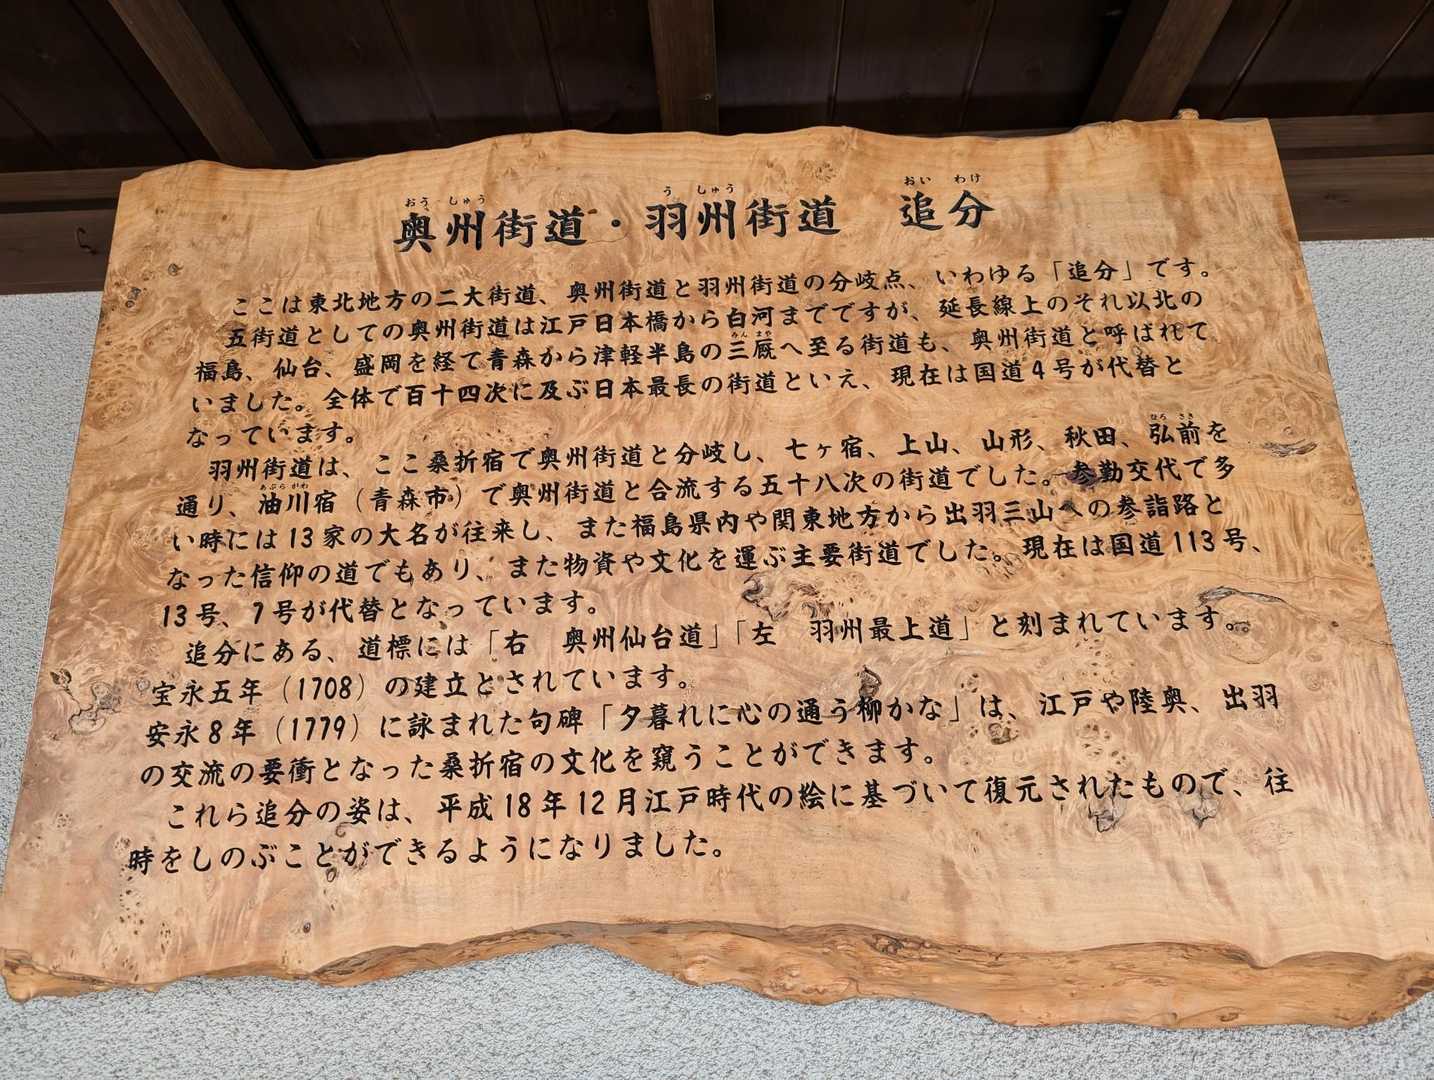 おうしゅう うしゅう おいわけ
奥州街道・羽州街道 追分
ここは東北地方の二大街道、奥州街道と羽州街道の分岐点、いわゆる「追分」です。
五街道としての奥州街道は江戸日本橋から白河までですが、延長線上のそれ以北の
みんまや
福島、仙台、盛岡を経て青森から津軽半島の三厩へ至る街道も、奥州街道と呼ばれて
いました。全体で百十四次に及ぶ日本最長の街道といえ、現在は国道4号が代替と
なっています。
ひろさき
羽州街道は、ここ桑折宿で奥州街道と分岐し、七ヶ宿、上山、山形、秋田、弘前を
あぶらかわ
通り、油川宿（青森市）で奥州街道と合流する五十八次の街道でした。参勤交代で多
い時には13家の大名が往来し、また福島県内や関東地方から出羽三山への参詣路と
なった信仰の道でもあり、また物資や文化を運ぶ主要街道でした。現在は国道113号、
13号、7号が代替となっています。
追分にある、道標には「右 奥州仙台道」「左 羽州最上道」と刻まれています。
宝永五年（1708）の建立とされています。
安永8年（1779）に詠まれた句碑「夕暮れに心の通う柳かな」は、江戸や陸奥、出羽
の交流の要衝となった桑折宿の文化を窺うことができます。
これら追分の姿は、平成18年12月江戸時代の絵に基づいて復元されたもので、往
時をしのぶことができるようになりました。